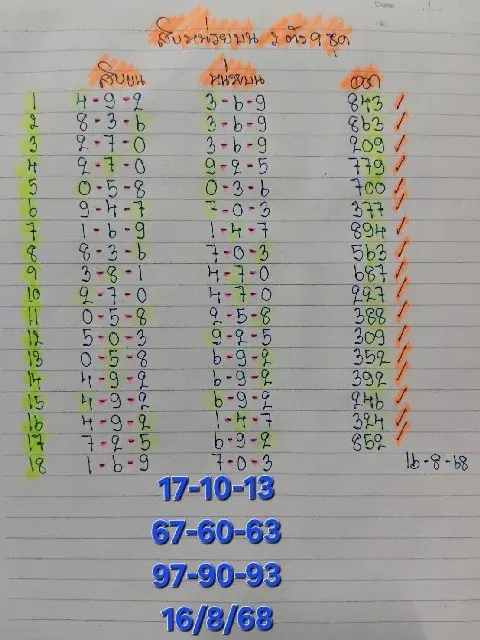 สิบหน่วยบน 2 ตัว 9 ชุด
สิบบน หน่วยบน ออก
1 4-9-2 3-6-9 843 ✓
2 8-3-6 3-6-9 863 ✓
3 2-7-0 3-6-9 209 ✓
4 2-7-0 9-2-5 779 ✓
5 0-5-8 0-3-6 700 ✓
6 9-4-7 7-0-3 377 ✓
7 1-6-9 1-4-7 894 ✓
8 8-3-6 7-0-3 563 ✓
9 3-8-1 4-7-0 687 ✓
10 2-7-0 4-7-0 227 ✓
11 0-5-8 2-5-8 388 ✓
12 5-0-3 9-2-5 309 ✓
13 0-5-8 6-9-2 352 ✓
14 4-9-2 6-9-2 392 ✓
15 4-9-2 6-9-2 246 ✓
16 4-9-2 1-4-7 324 ✓
17 7-2-5 6-9-2 852 ✓
18 1-6-9 7-0-3 16-8-68
17-10-13
67-60-63
97-90-93
16/8/68